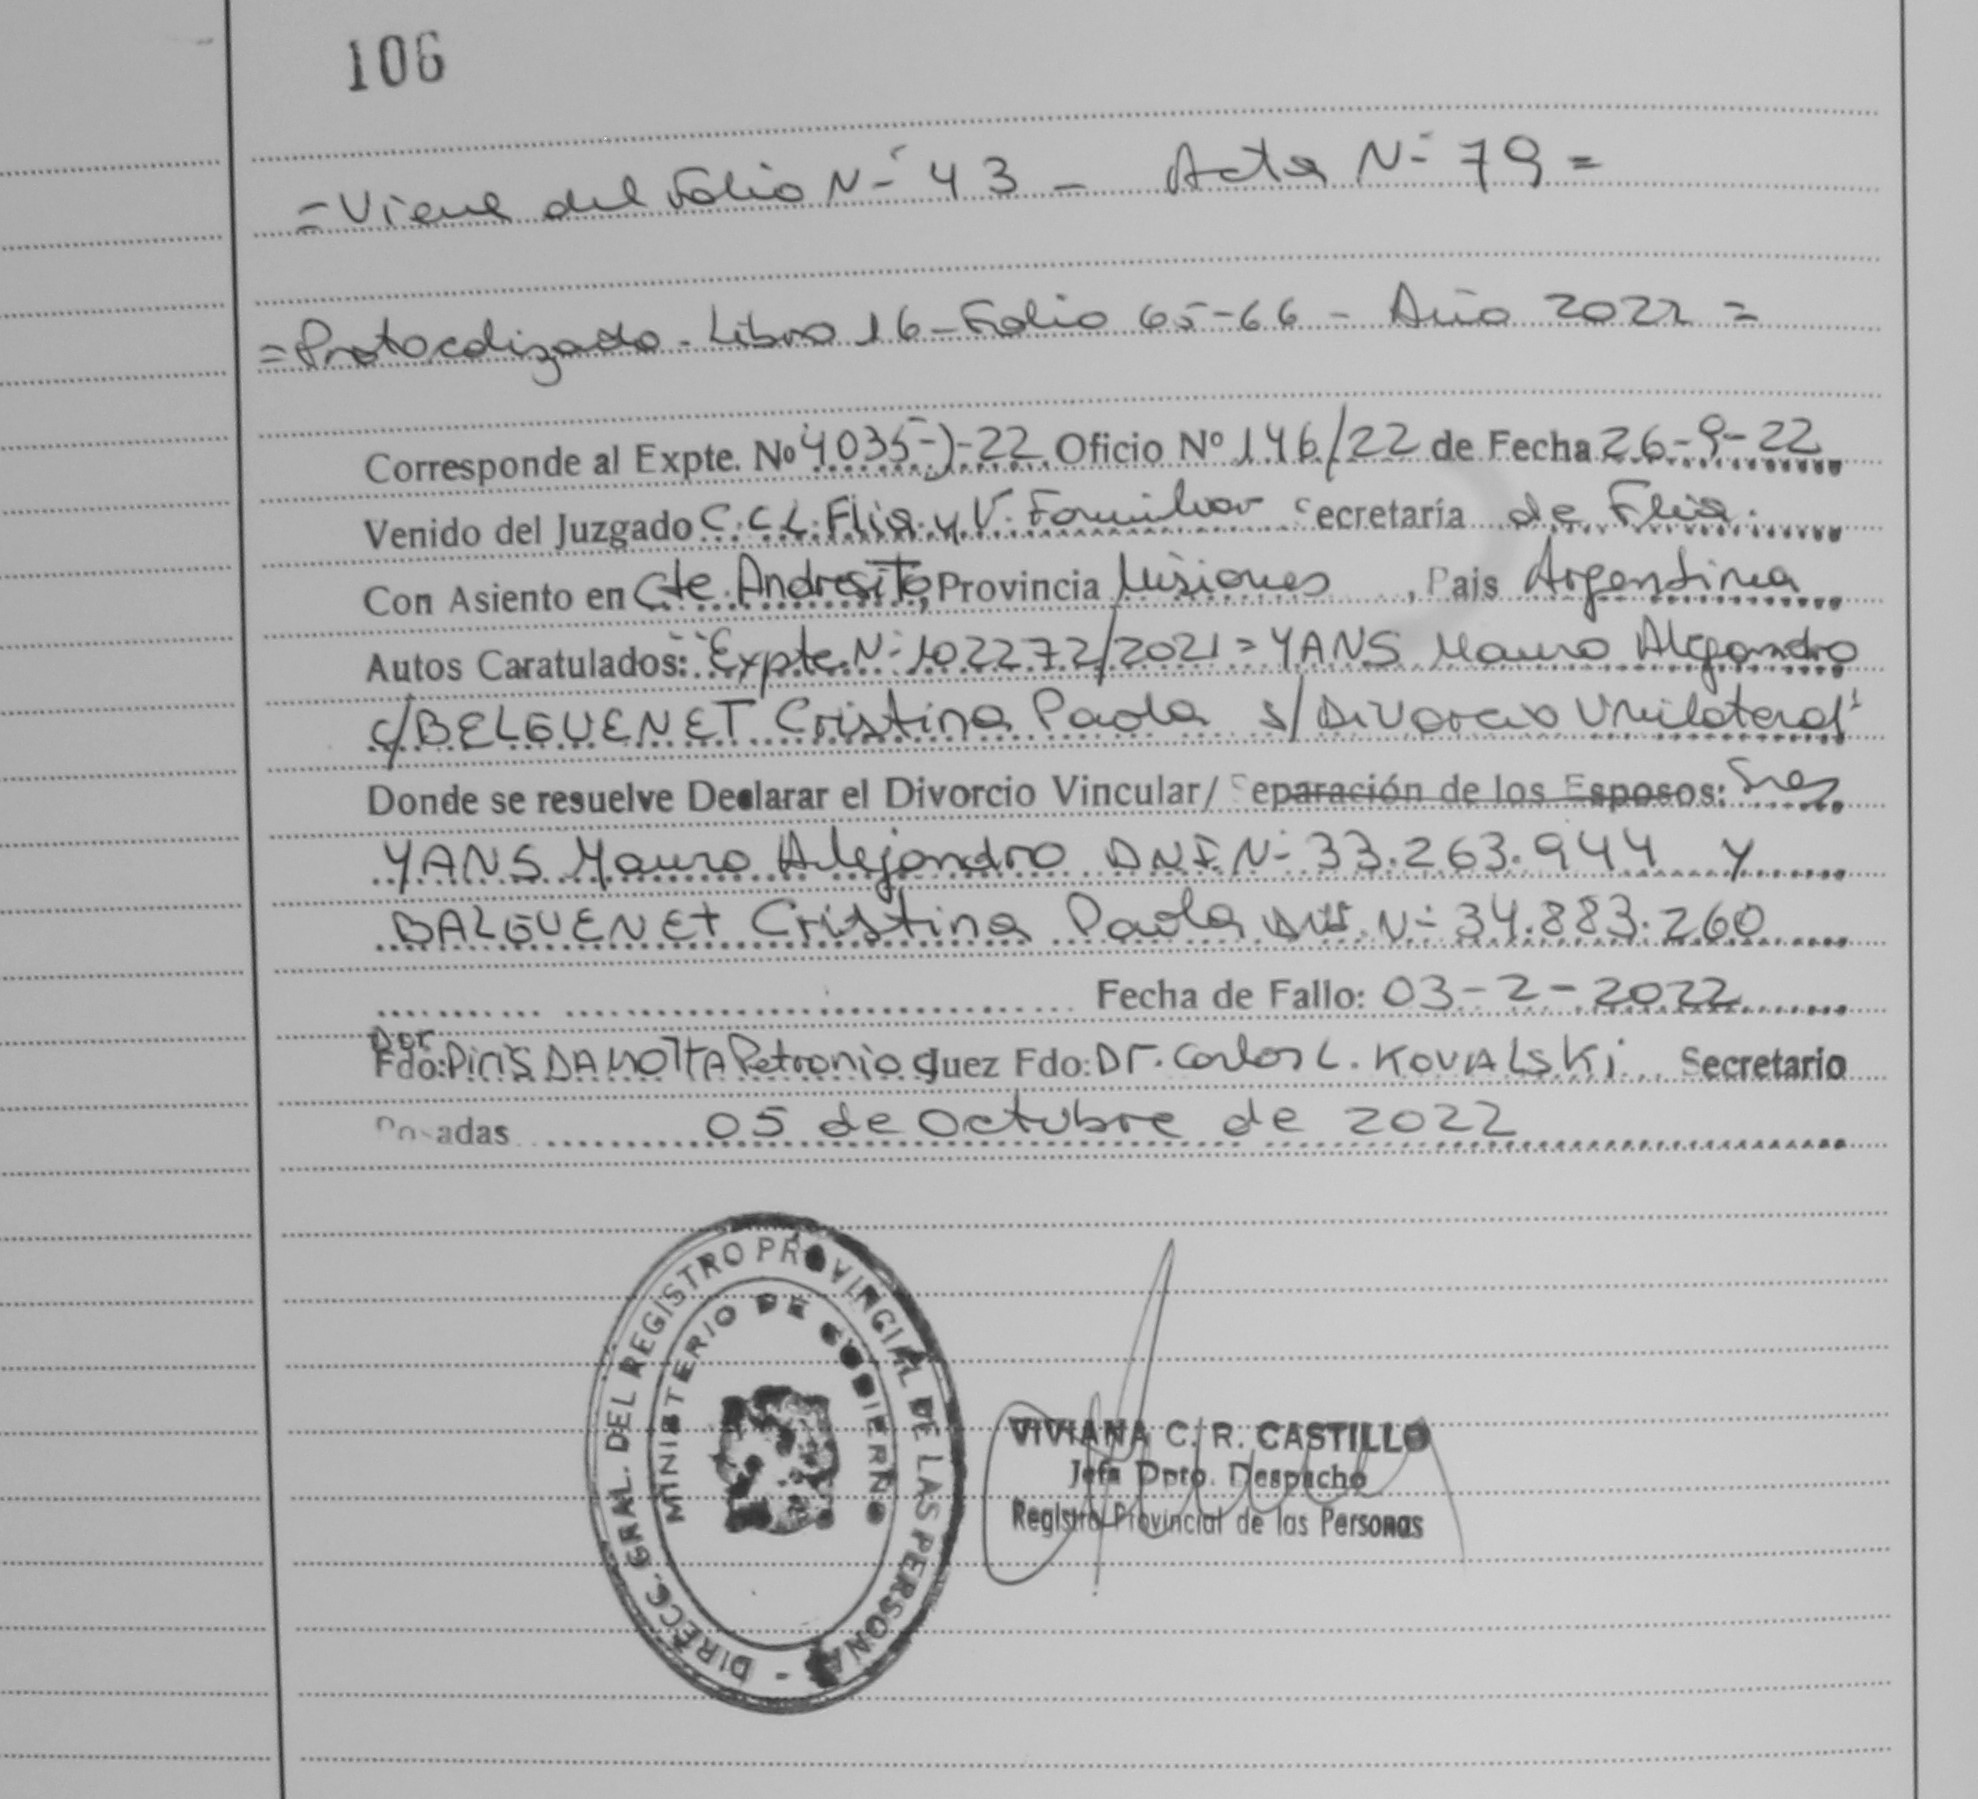 106
=Viene del Folio Nº 43 - Acta Nº 79=
=Protocolizado - Libro 16 - Folio 65-66 - Año 2022=
Corresponde al Expte. Nº 4035-J-22 Oficio Nº 146/22 de Fecha 26-9-22
Venido del Juzgado C.C.L. Flia. y V. Familiar Secretaría de Flia.
Con Asiento en Cte. Andresito, Provincia Misiones, Pais Argentina
Autos Caratulados: "Expte. Nº 102272/2021 = YANS Mauro Alejandro
c/BELGUENET Cristina Paola s/Divorcio Unilateral"
Donde se resuelve Declarar el Divorcio Vincular/ Separación de los Esposos: Sres
YANS Mauro Alejandro DNI Nº 33.263.944 y
BALGUENET Cristina Paola DNI. Nº 34.883.260
Fecha de Fallo: 03-2-2022
Fdo: Piris DA MOTTA Petronio Juez Fdo: Dr. Carlos L. KOVALSKi Secretario
Posadas 05 de Octubre de 2022
DIRECC. GRAL. DEL REGISTRO PROVINCIAL DE LAS PERSONAS -
MINISTERIO DE GOBIERNO
VIVIANA C. R. CASTILLO
Jefa Dpto. Despacho
Registro Provincial de las Personas